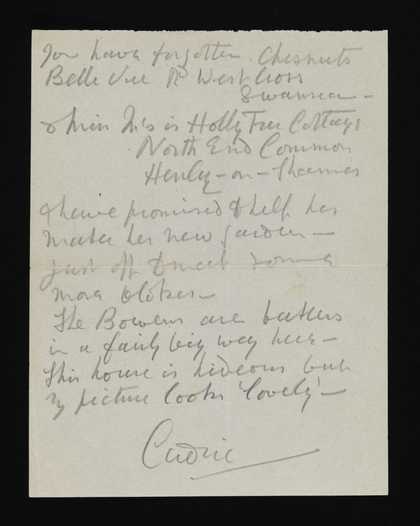 You have forgotten. Chesnuts
Belle Vue Rd West Cross
Swansea –
& Miss Nis is Holly Tree Cottage
North End Common
Henley-on-Thames
I have promised to help her
make her new garden –
just off to meet some
more blokes –
The Bowens are bakers
in a fairly big way here –
This house is hideous but
my picture looks 'lovely' –
Cedric